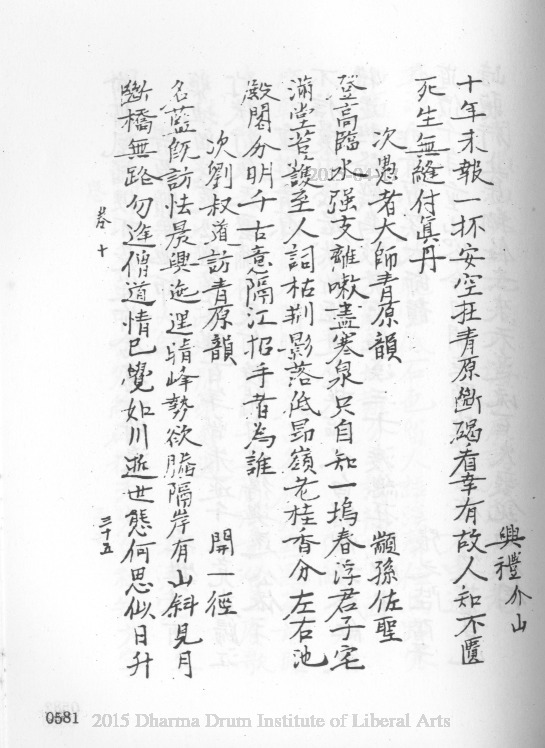 興禮 介山
十年未報一抔安空拄青原斷碣看幸有故人知不匱
死生無縫付眞丹
次愚者大師青原韻 顓孫佐聖
登高臨水强支離嗽盡寒泉只自知一塢春浮君子宅
滿堂苔護至人詞枯荆影落低昂嶺老桂香分左右池
殿閣分明千古意隔江招手者為誰
次劉叔道訪青原韻 開一徑
名藍旣訪怯晨興迤邐晴峰勢欲騰隔岸有山斜見月
斷橋無路勿逢僧道情已覺如川逝世態何思似日升
卷十 三十五
0581 2015 Dharma Drum Institute of Liberal Arts